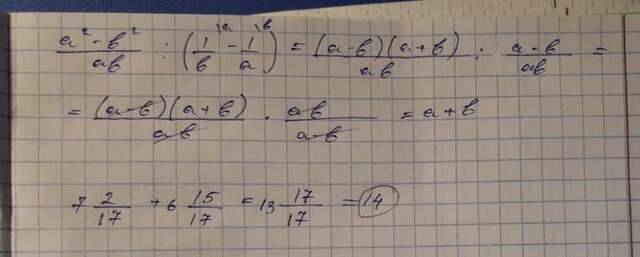 (a² - b²)/(ab) : (1/b \a - 1/a \b) = ((a-b)(a+b))/(ab) : (a-b)/(ab) =
= ((a-b)(a+b))/(ab) · (ab)/(a-b) = a+b
7 2/17 + 6 15/17 = 13 17/17 = 14